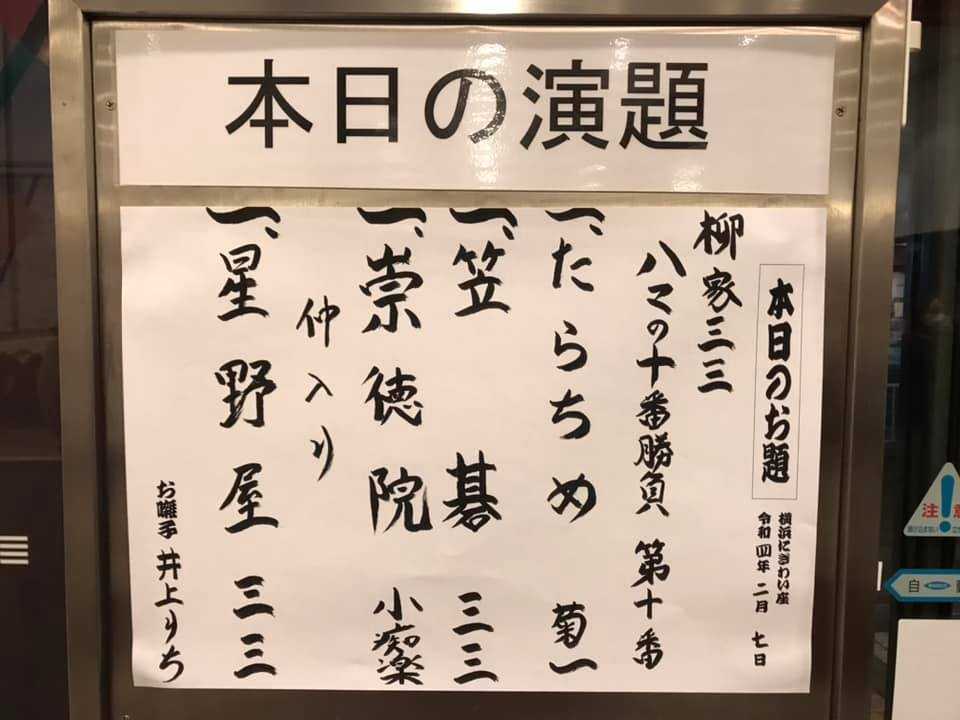 本日の演題
本日のお題
横浜にぎわい座
令和四年 二月 七日
柳家三三
ハマの十番勝負 第十番
一、たらちめ 菊一
一、笠碁 三三
一、崇徳院 小痴楽
仲入り
一、星野屋 三三
お囃子 井上りち
注意